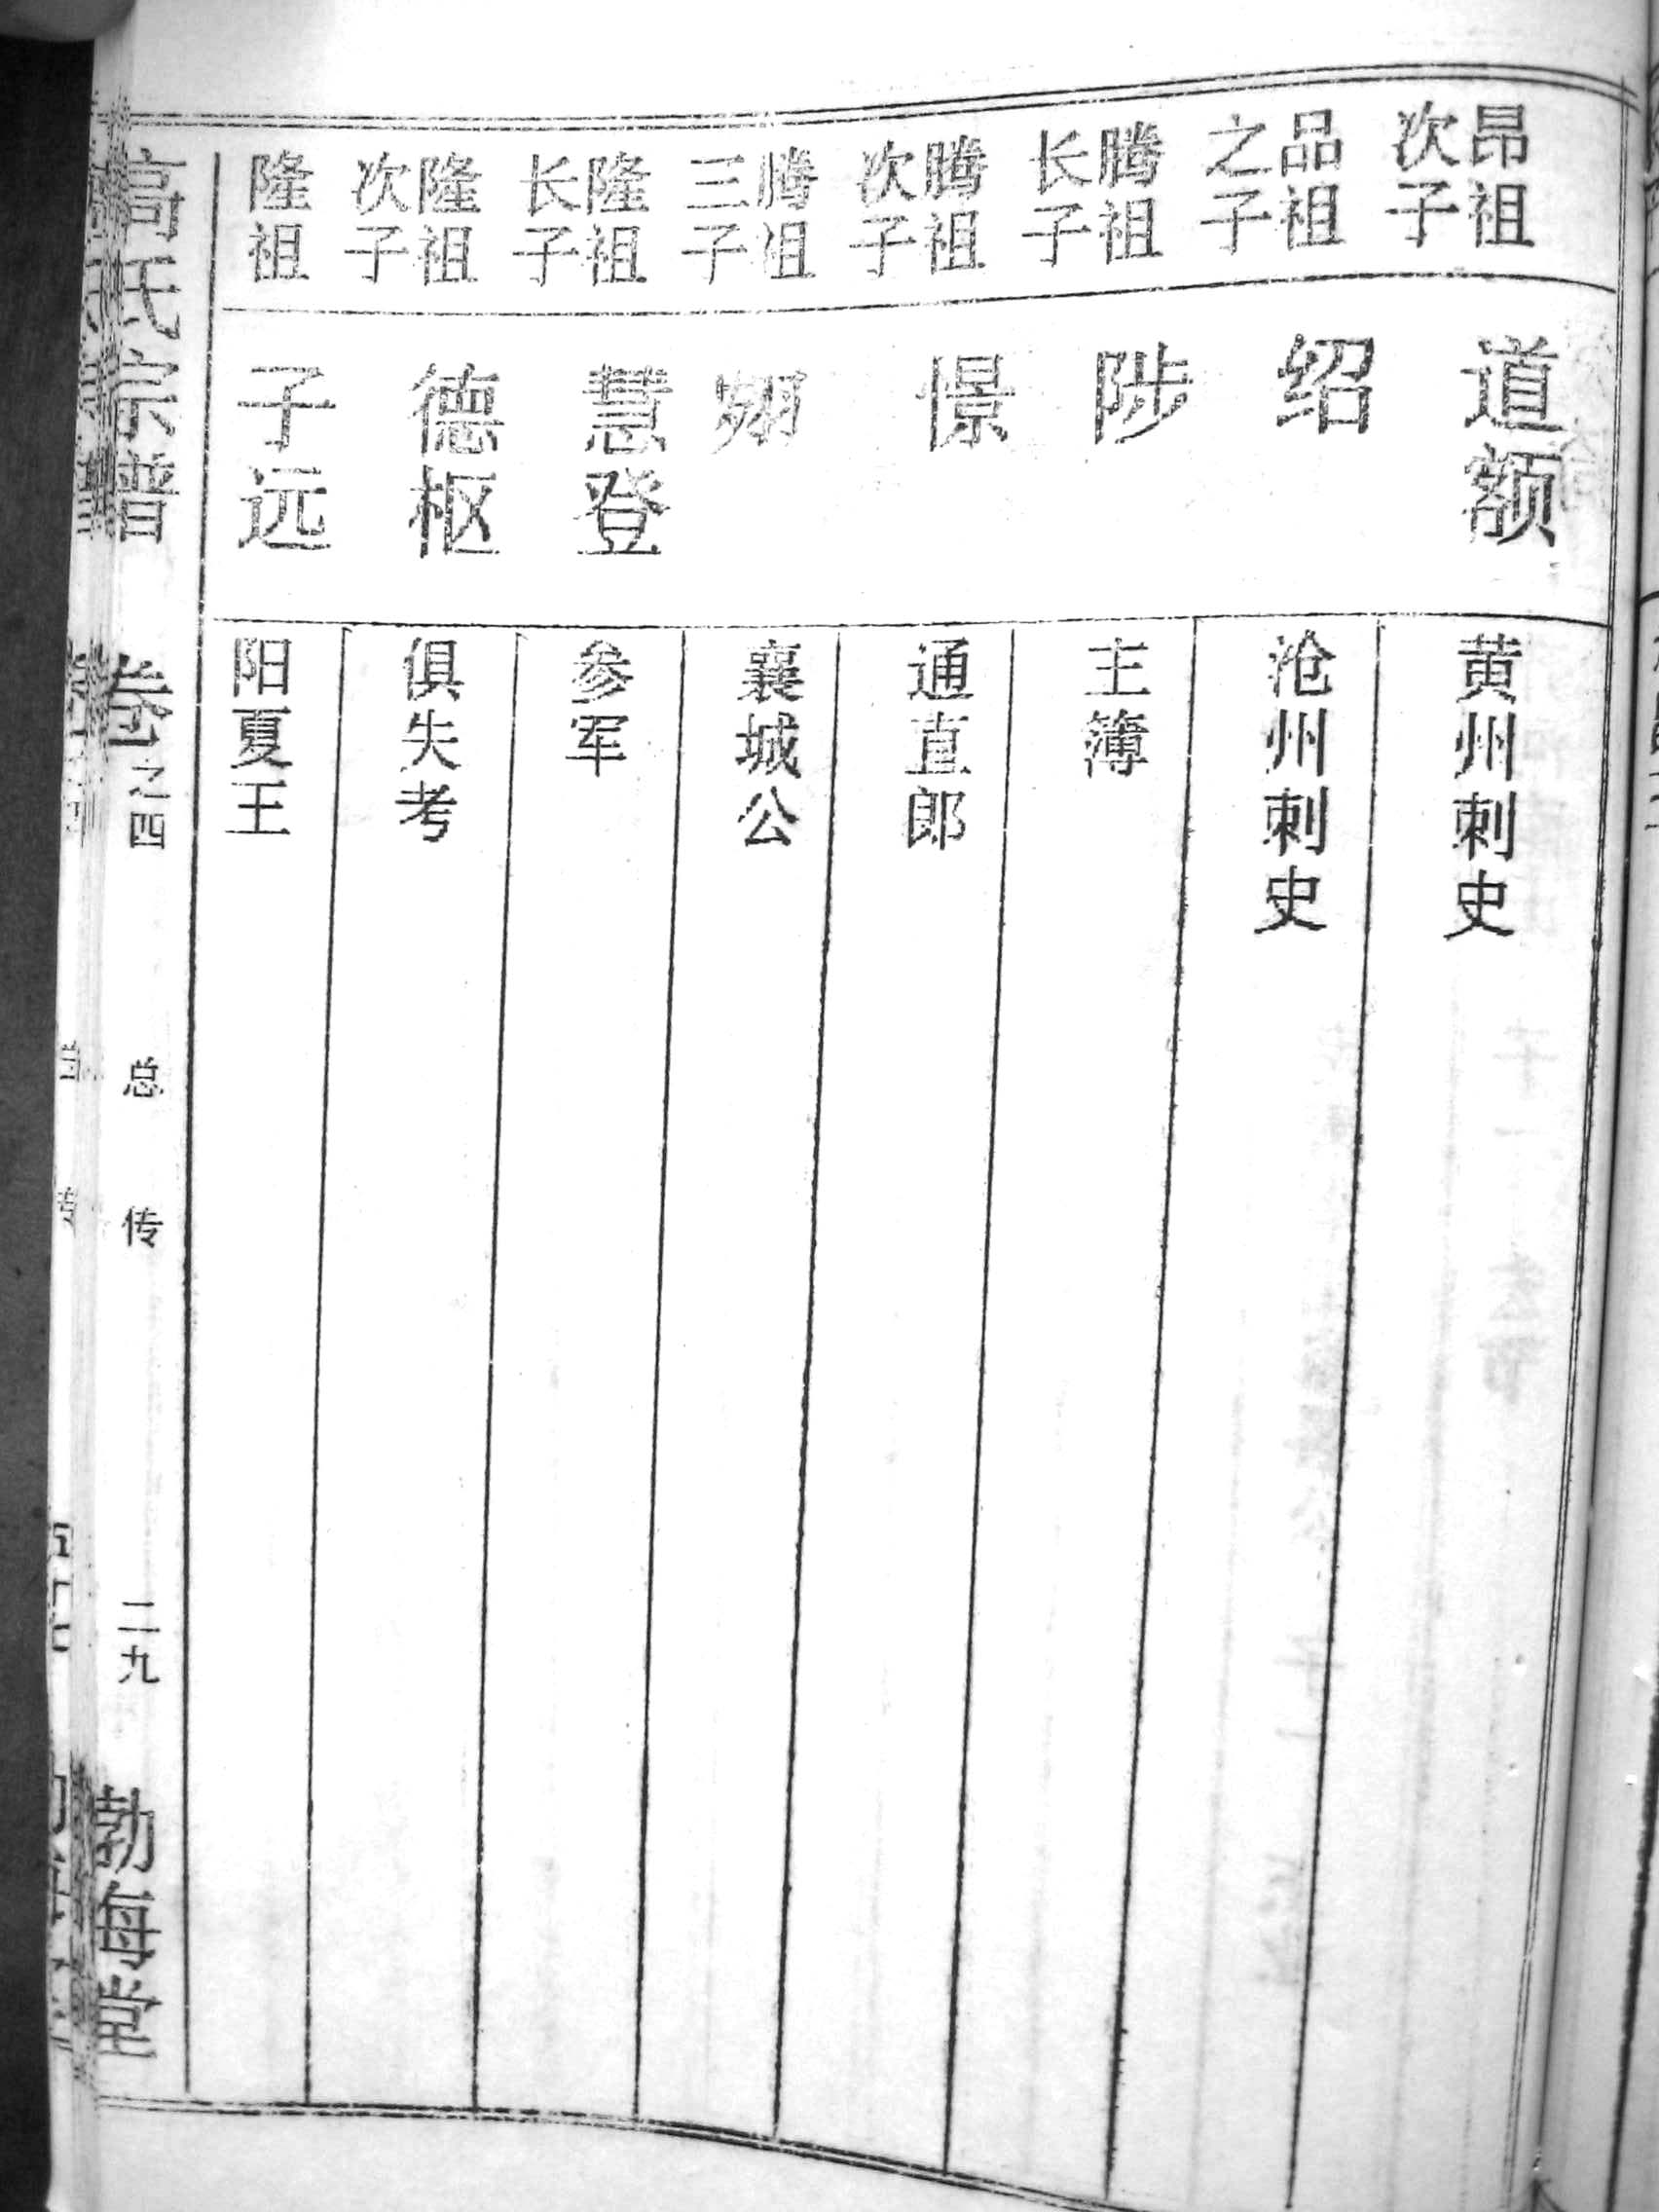 昂祖
次子
道额
黄州刺史
品祖
之子
绍
沧州刺史
腾祖
长子
陟
主簿
腾祖
次子
憬
通直郎
腾祖
三子
襄城公
隆祖
长子
慧登
参军
隆祖
次子
德枢
俱失考
隆祖
子远
阳夏王
高氏宗谱 卷之四 总传 二九 勃海堂